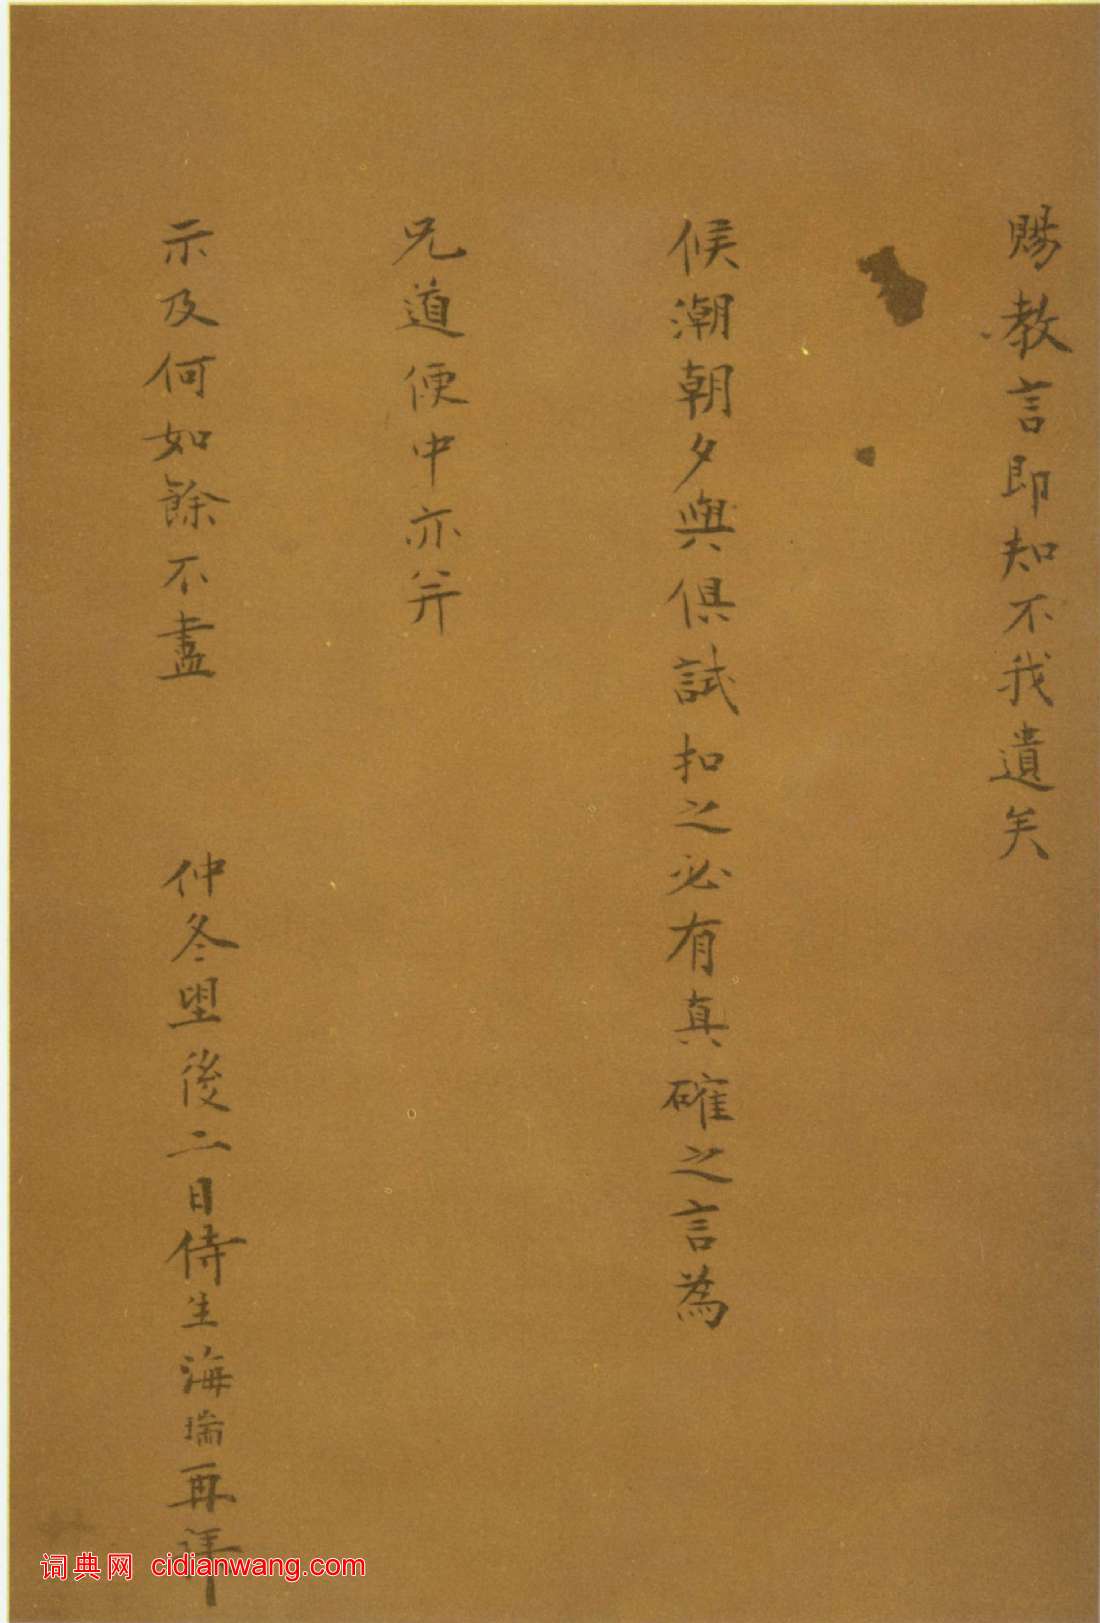 賜教言即知不我遺矣
候潮朝夕與俱試扣之必有真確之言為
兄道便中亦并
示及何如餘不盡 仲冬望後二日侍生海瑞再拜
词典网 cidianwang.com